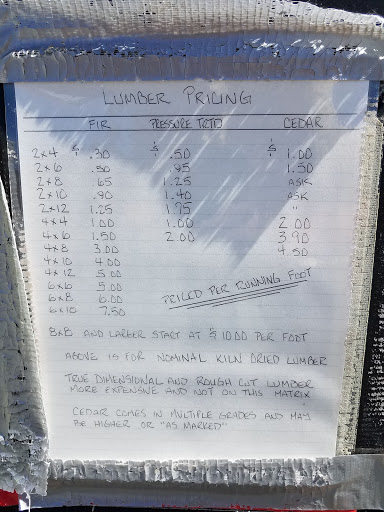 LUMBER PRICING
FIR PRESSURE TRTD CEDAR
2x4 $ .30 $ .50 $ 1.00
2x6 .50 .95 1.50
2x8 .65 1.25 ASK
2x10 .90 1.40 ASK
2x12 1.25 1.75 "
4x4 1.00 1.00 2.00
4x6 1.50 2.00 3.90
4x8 3.00 4.50
4x10 4.00
4x12 5.00
6x6 5.00
6x8 6.00
6x10 7.50
PRICED PER RUNNING FOOT
8x8 AND LARGER START AT $10.00 PER FOOT
ABOVE IS FOR NOMINAL KILN DRIED LUMBER
TRUE DIMENSIONAL AND ROUGH CUT LUMBER
MORE EXPENSIVE AND NOT ON THIS MATRIX
CEDAR COMES IN MULTIPLE GRADES AND MAY
BE HIGHER OR "AS MARKED"